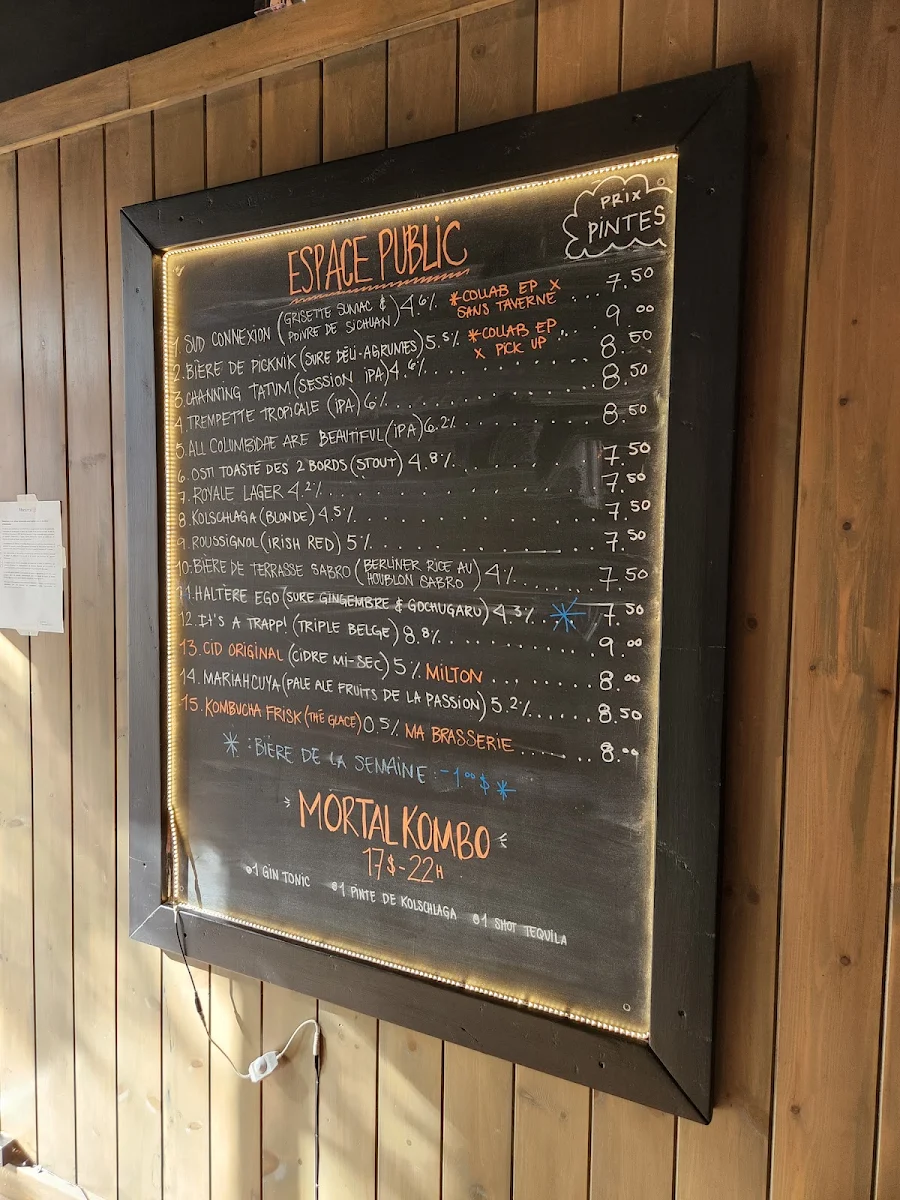 PRIX
PINTES
ESPACE PUBLIC
1. SUD CONNEXION (GRISETTE SUMAC & POIVRE DE SICHUAN) 4.6% *COLLAB EP X SANS TAVERNE ... 7.50
2. BIÈRE DE PICKNIK (SURE DÉLI-AGRUMES) 5.5% *COLLAB EP X PICK UP ... 9.00
3. CHANNING TATUM (SESSION IPA) 4.6% ... 8.50
4. TREMPETTE TROPICALE (IPA) 6% ... 8.50
5. ALL COLUMBIDAE ARE BEAUTIFUL (IPA) 6.2% ... 8.50
6. OSTI TOASTÉ DES 2 BORDS (STOUT) 4.8% ... 7.50
7. ROYALE LAGER 4.2% ... 7.50
8. KOLSCHLAGA (BLONDE) 4.5% ... 7.50
9. ROUSSIGNOL (IRISH RED) 5% ... 7.50
10. BIÈRE DE TERRASSE SABRO (BERLINER RICE AU HOUBLON SABRO) 4% ... 7.50
11. HALTÈRE EGO (SURE GINGEMBRE & GOCHUGARU) 4.3% ... * 7.50
12. IT'S A TRAPP! (TRIPLE BELGE) 8.8% ... 9.00
13. CID ORIGINAL (CIDRE MI-SEC) 5% MILTON ... 8.00
14. MARIAHCUYA (PALE ALE FRUITS DE LA PASSION) 5.2% ... 8.50
15. KOMBUCHA FRISK (THÉ GLACÉ) 0.5% MA BRASSERIE ... 8.00
* : BIÈRE DE LA SEMAINE : -1.00$ *
MORTAL KOMBO
17$-22H
1 GIN TONIC 1 PINTE DE KOLSCHLAGA 1 SHOT TEQUILA